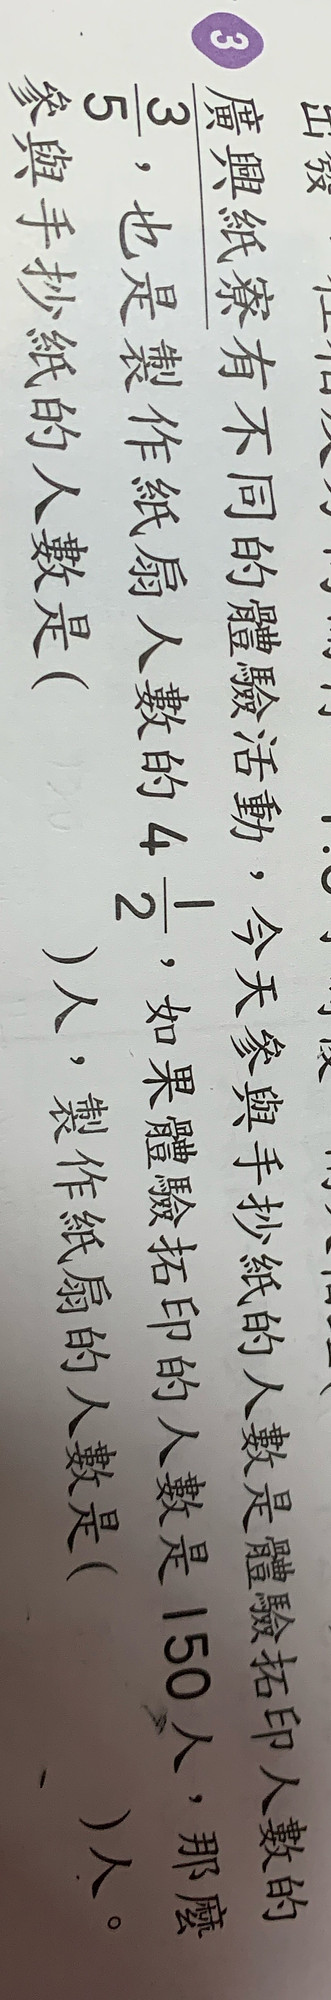 出發
3 廣興紙寮有不同的體驗活動，今天參與手抄紙的人數是體驗拓印人數的
3/5，也是製作紙扇人數的4 1/2，如果體驗拓印的人數是150人，那麼
參與手抄紙的人數是（ ）人，製作紙扇的人數是（ ）人。